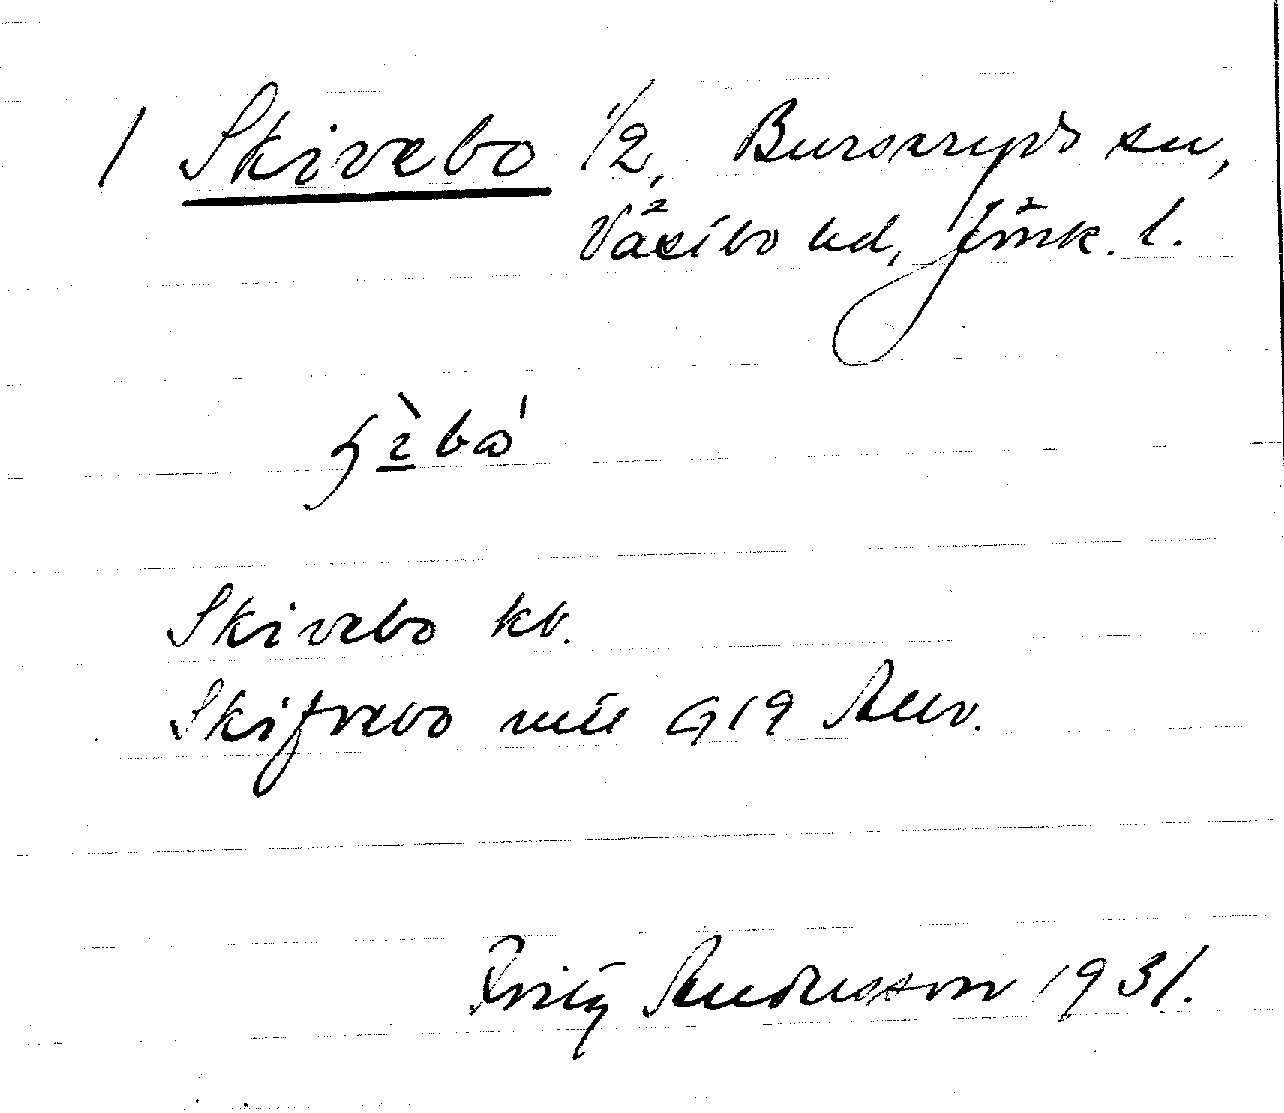 1 Skivebo 1/2, Burseryds sn,
Västbo hd, Jönk. l.
Skivebo kb.
Skifvebo mtl 919 Rev.
Fritz Andersson 1931.